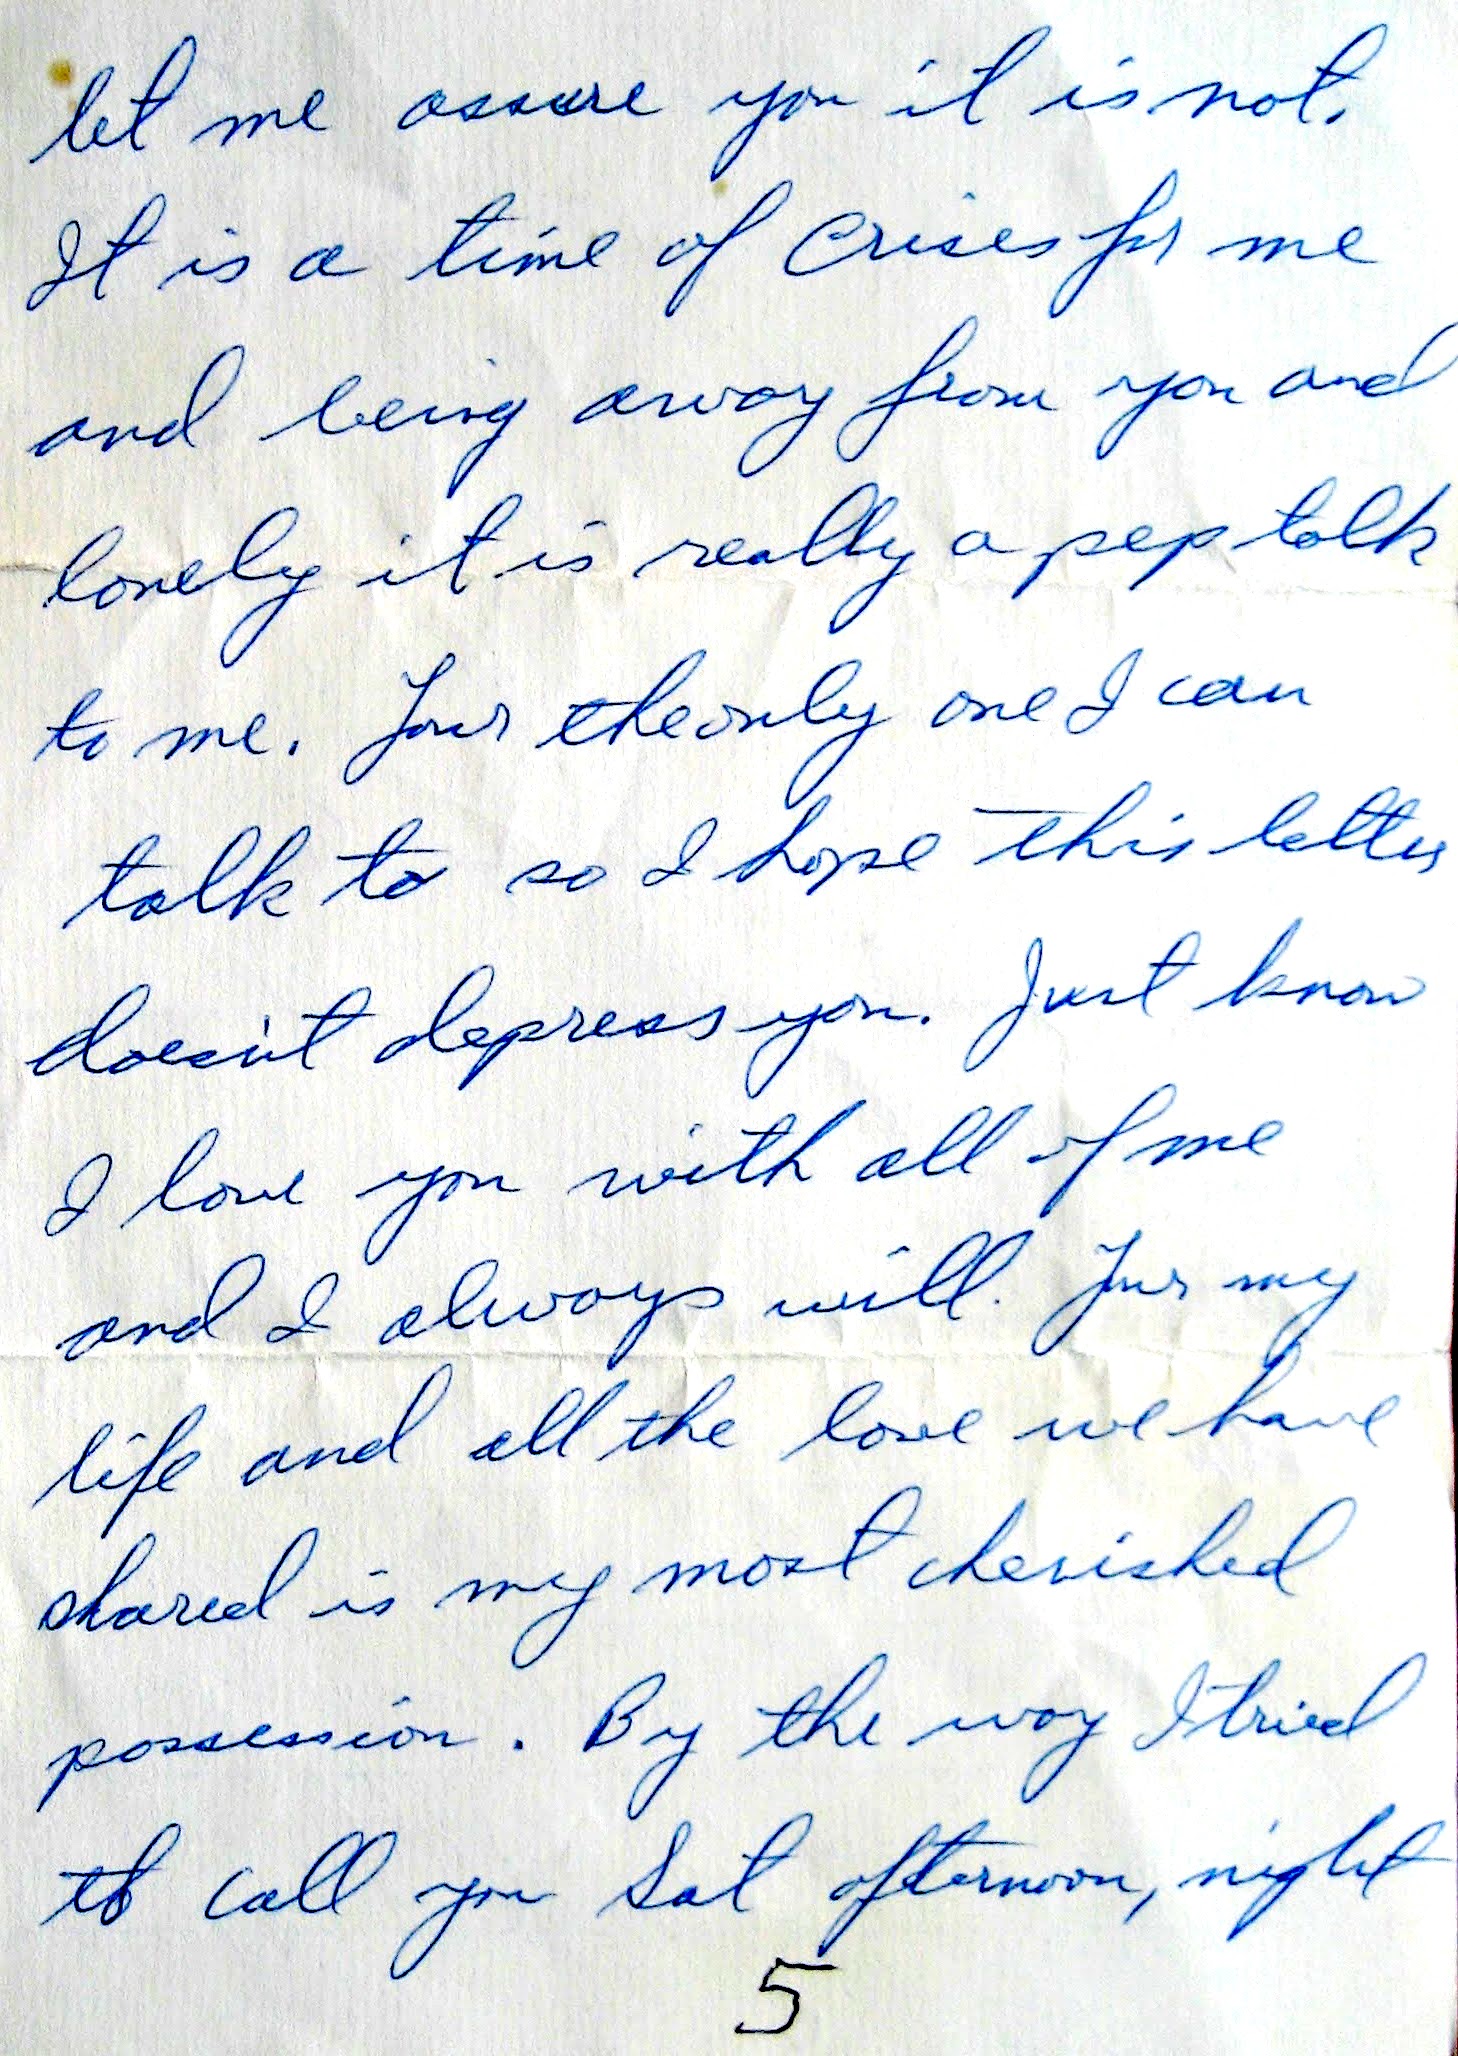 let me assure you it is not.
It is a time of Crises for me
and being away from you and
lonely it is really a pep talk
to me. Your the only one I can
talk to so I hope this letter
doesn't depress you. Just know
I love you with all of me
and I always will. Your my
life and all the love we have
shared is my most cherished
possession. By the way I tried
to call you Sat afternoon, night
5